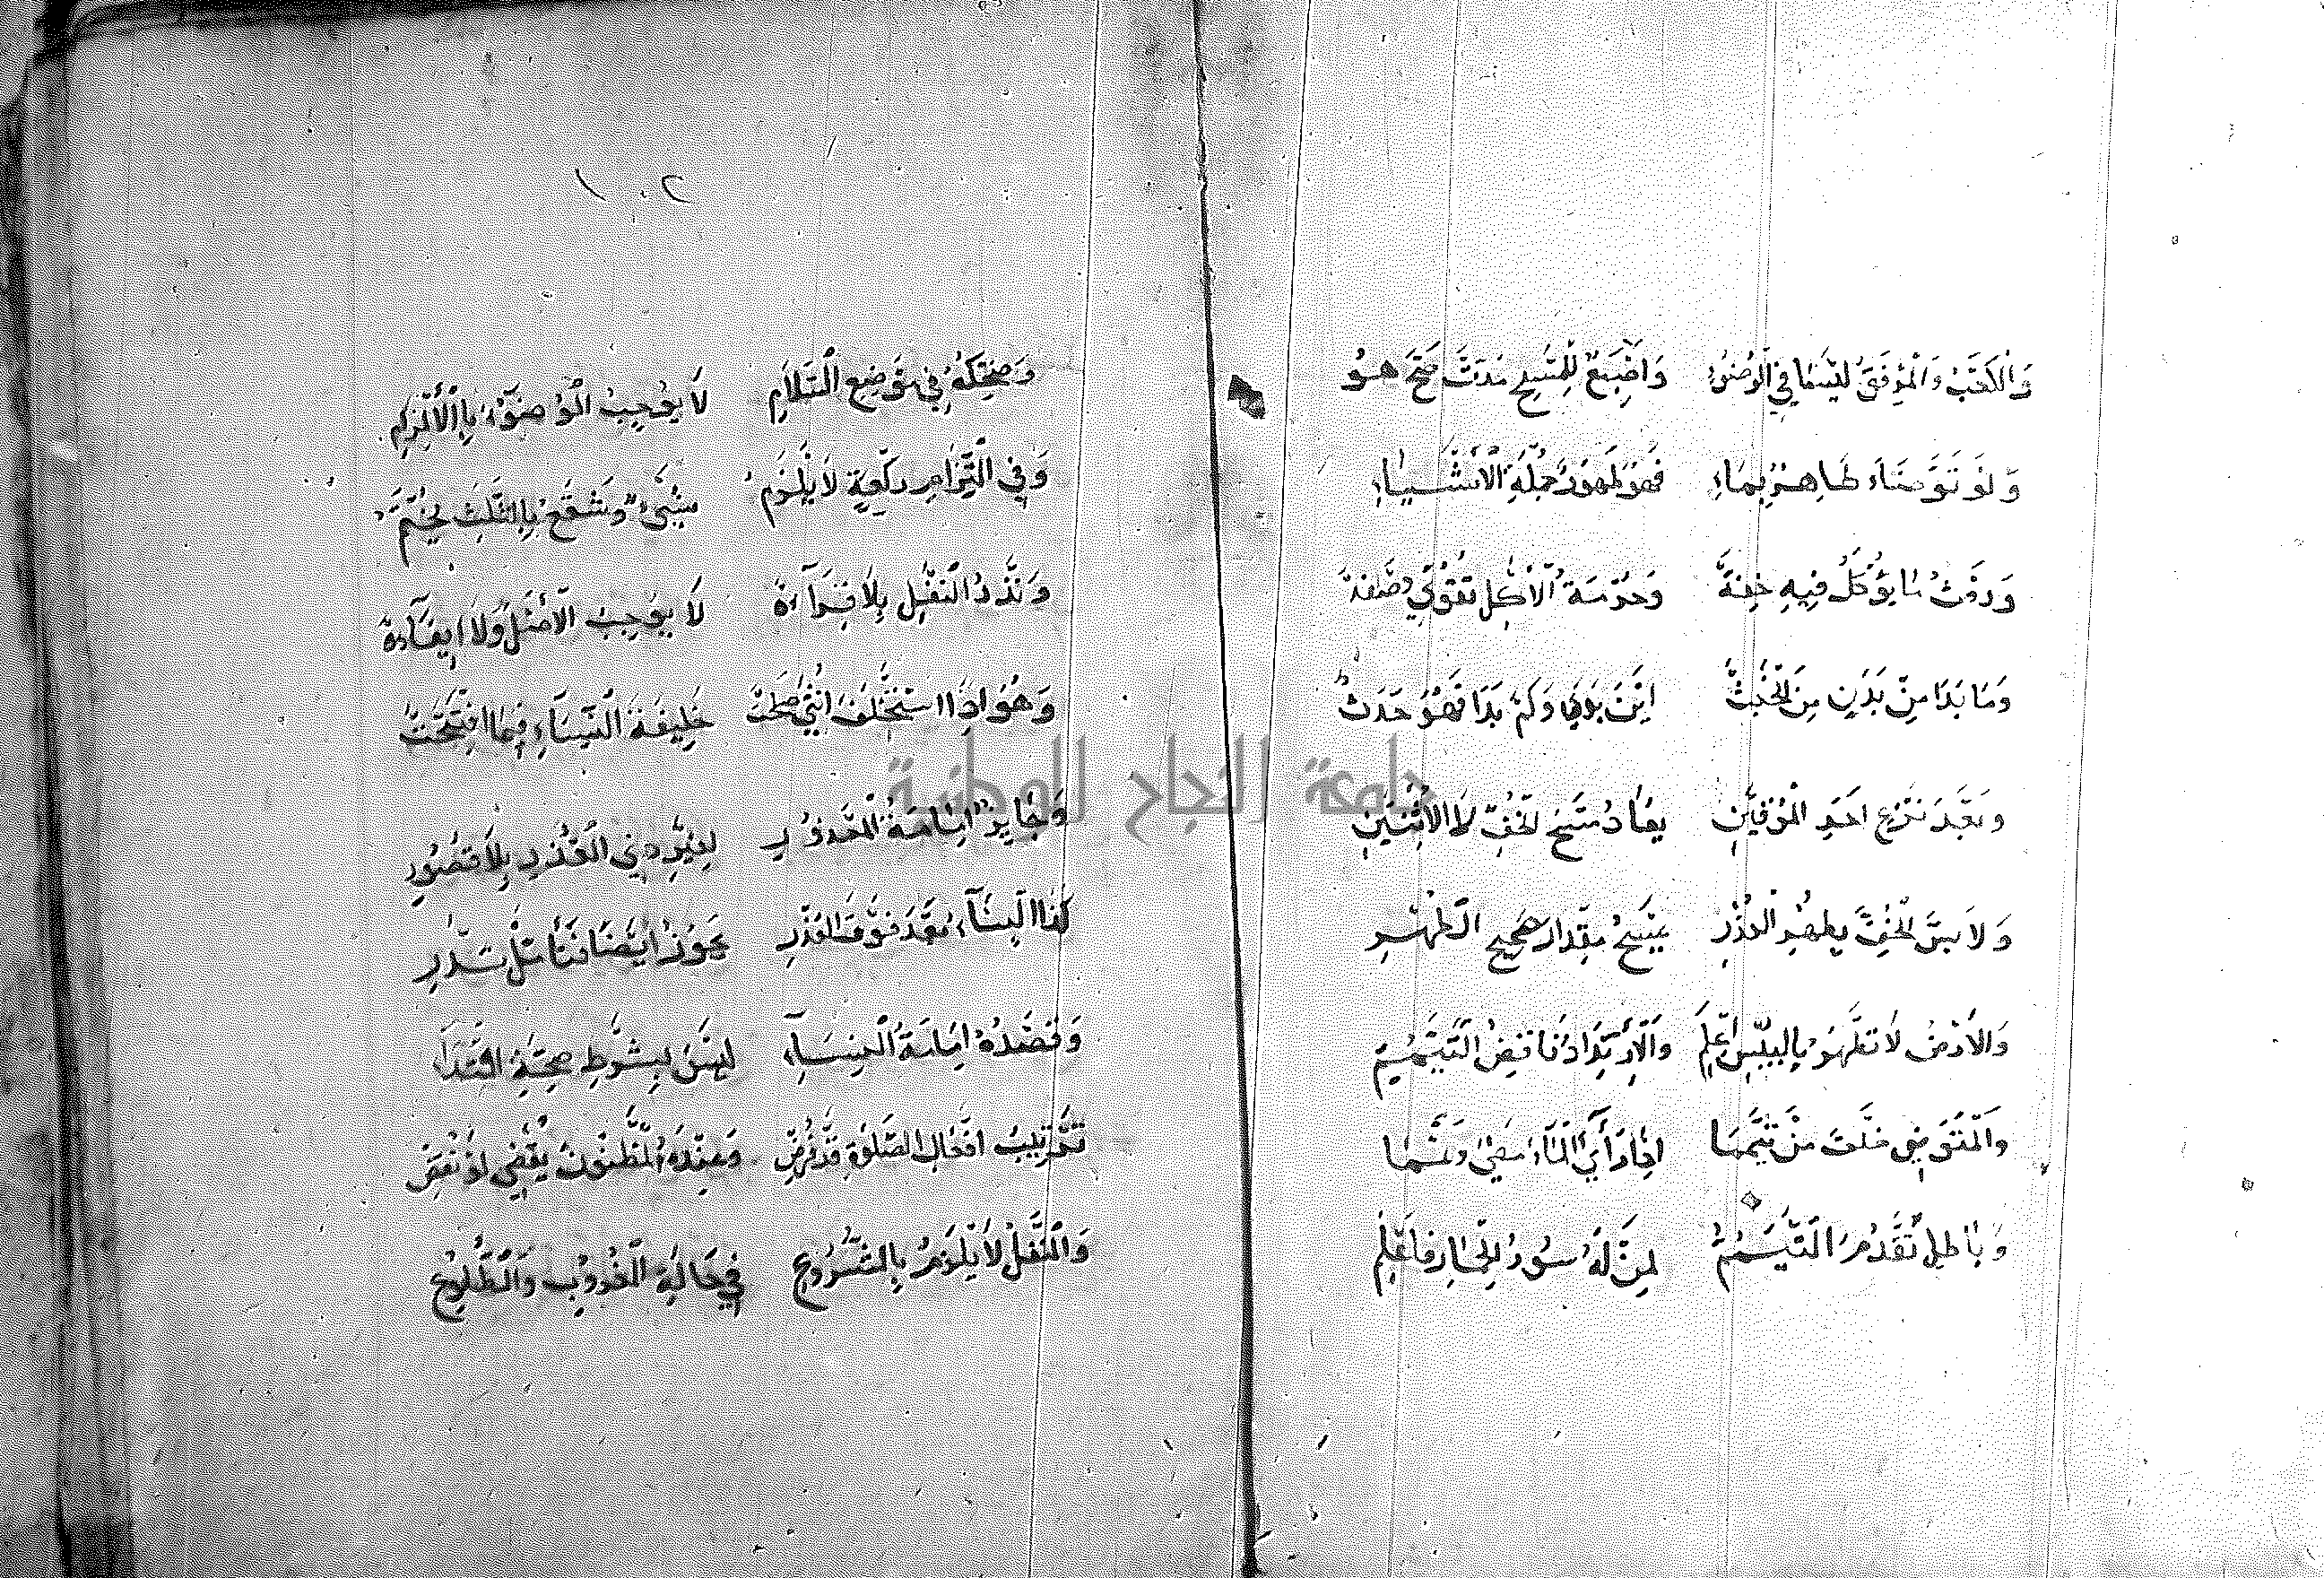 وَالْكَعْبُ وَالْمِرْفَقُ لَيْسَا فِي الْوُضُوءِ وَاِصْبَعٌ لِلْمَسْحِ مُدَّتْ صَحَّ هُو
وَلَوْ تَوَضَّاءَ طَاهِرٌ بِمَاءِ فَهُوَ طَهُورُ جُمْلَةِ الْأَشْيَاءِ
وَرَوْثُ مَا يُؤْكَلُ فِيهِ خِفَّة وَحُرْمَةُ الْأَكْلِ تُقَوِّي ضَعْفَهْ
وَمَا بَدَا مِنْ بَدَنٍ مِنَ الْخَبَثْ اِنْ بَدَا فَهُوَ حَدَثْ
وَبَعْدَ نَزْعِ اَحَدِ الْمُوقَيْنِ يُعَادُ مَسْحُ الْخُفِّ لَا الْاِثْنَيْنِ
وَلَابِسُ الْخُفِّ بِطُهْرِ الْعُذْرِ يَمْسَحُ مِقْدَارَ صَحِيحِ الطُّهْرِ
وَالْأَرْضُ لَا تَطْهُرُ بِالْيَبْسِ اعْلَمِ وَالْاِرْتِدَادُ نَاقِضُ التَّيَمُّمِ
وَالْمُتَوَضِّي خَلْفَ مَنْ تَيَمَّمَا اِذَا رَأَى الْمَاءَ مَضَى وَتَمَّمَا
وَبَاطِلٌ تَقَدُّمُ التَّيَمُّمِ لِمَنْ لَهُ سُؤْرُ الْحِمَارِ فَاعْلَمِ
١٠٢
وَضِحْكُهُ فِي مَوْضِعِ السَّلَامِ لَا يُوجِبُ الْوُضُوءَ بِالْاِلْزَامِ
وَفِي الْتِزَامِ رَكْعَةٍ لَا يَلْزَمُ شَيْءٌ وَشَفْعٌ بِالثَّلَاثِ
وَنَذْرُ النَّفْلِ بِلَا قِرَاءَةْ لَا يُوجِبُ الْأَصْلَ وَلَا
وَهُوَ اِذَا اسْتَخْلَفَ اُنْثَى صَلَحَتْ خَلِيفَةَ النِّسَاءِ فِيمَا افْتَتَحَتْ
وَجَايِزٌ اِمَامَةُ الْمَعْذُورِ لِغَيْرِ ذِي الْعُذْرِ بِلَا قُصُورِ
كَذَا الْبِنَاءُ بَعْدَ فَوْقَ الْقَذَرِ يَجُوزُ اَيْضًا فَتَأَمَّلْ تَدْرِ
وَقَصْدُهُ اِمَامَةَ النِّسَاءِ لَيْسَ بِشَرْطِ صِحَّةِ اقْتِدَاءِ
تَرْتِيبُ اَفْعَالِ الصَّلَوةِ قَدْ فُرِضْ وَعِنْدَهُ الْمَظْنُونُ يُقْضَى اِذْ نُقِضْ
وَالنَّفْلُ لَا يَلْزَمُ بِالشُّرُوعِ فِي حَالَةِ الْغُرُوبِ وَالطُّلُوعِ
جامعة النجاح الوطنية